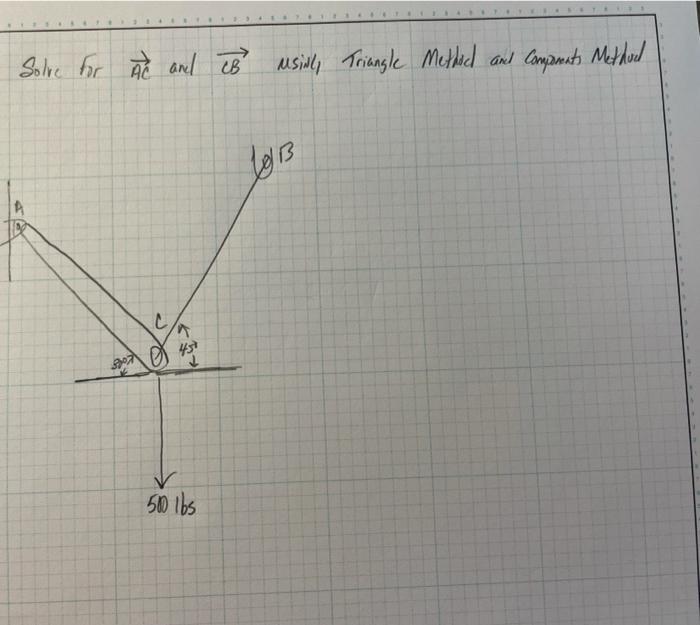 Solve for AC and CB using Triangle Method and Components Method
B
A
C
30° 45°
500 lbs